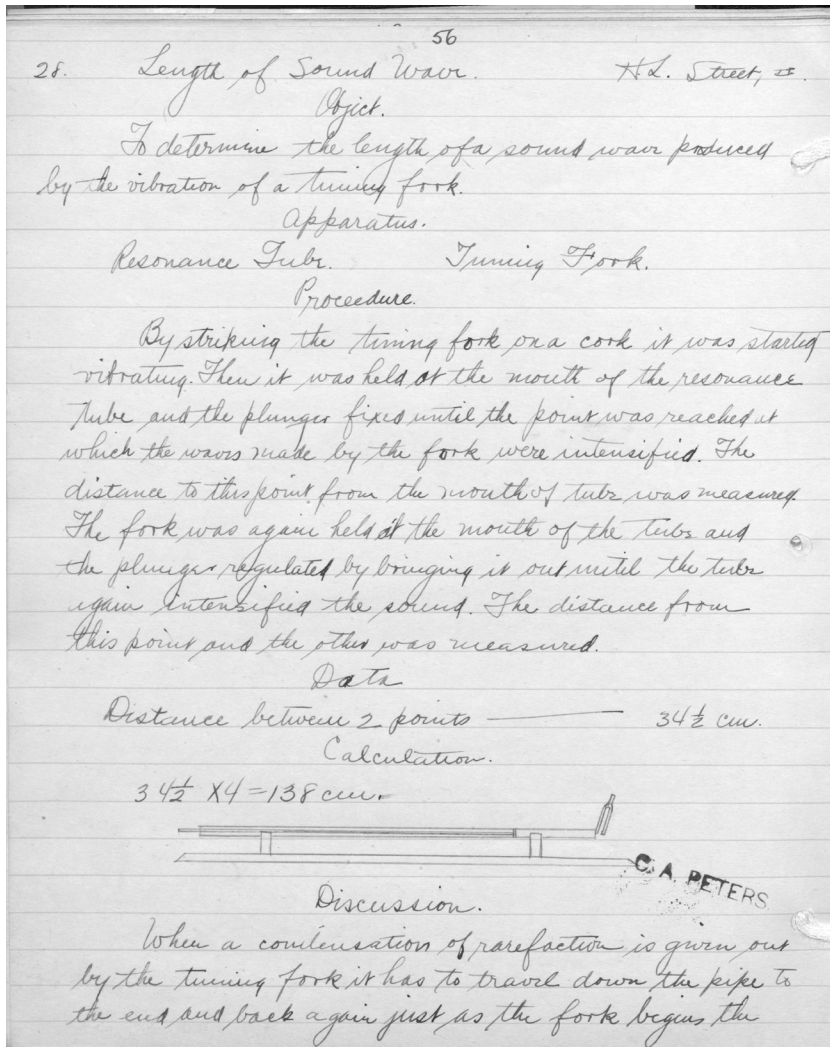 56
28. Length of Sound Wave. H L. Street, II.
Object.
To determine the length of a sound wave produced
by the vibration of a tuning fork.
Apparatus.
Resonance Tube. Tuning Fork.
Proceedure.
By striking the tuning fork on a cork it was started
vibrating. Then it was held at the mouth of the resonance
tube and the plunger fixed until the point was reached at
which the waves made by the fork were intensified. The
distance to this point from the mouth of tube was measured.
The fork was again held at the mouth of the tube and
the plunger regulated by bringing it out until the tube
again intensified the sound. The distance from
this point and the other was measured.
Data
Distance between 2 points — 34 1/2 cm.
Calculation.
34 1/2 X 4 = 138 cm.
C. A. PETERS
Discussion.
When a condensation of rarefaction is given out
by the tuning fork it has to travel down the pipe to
the end and back again just as the fork begins the